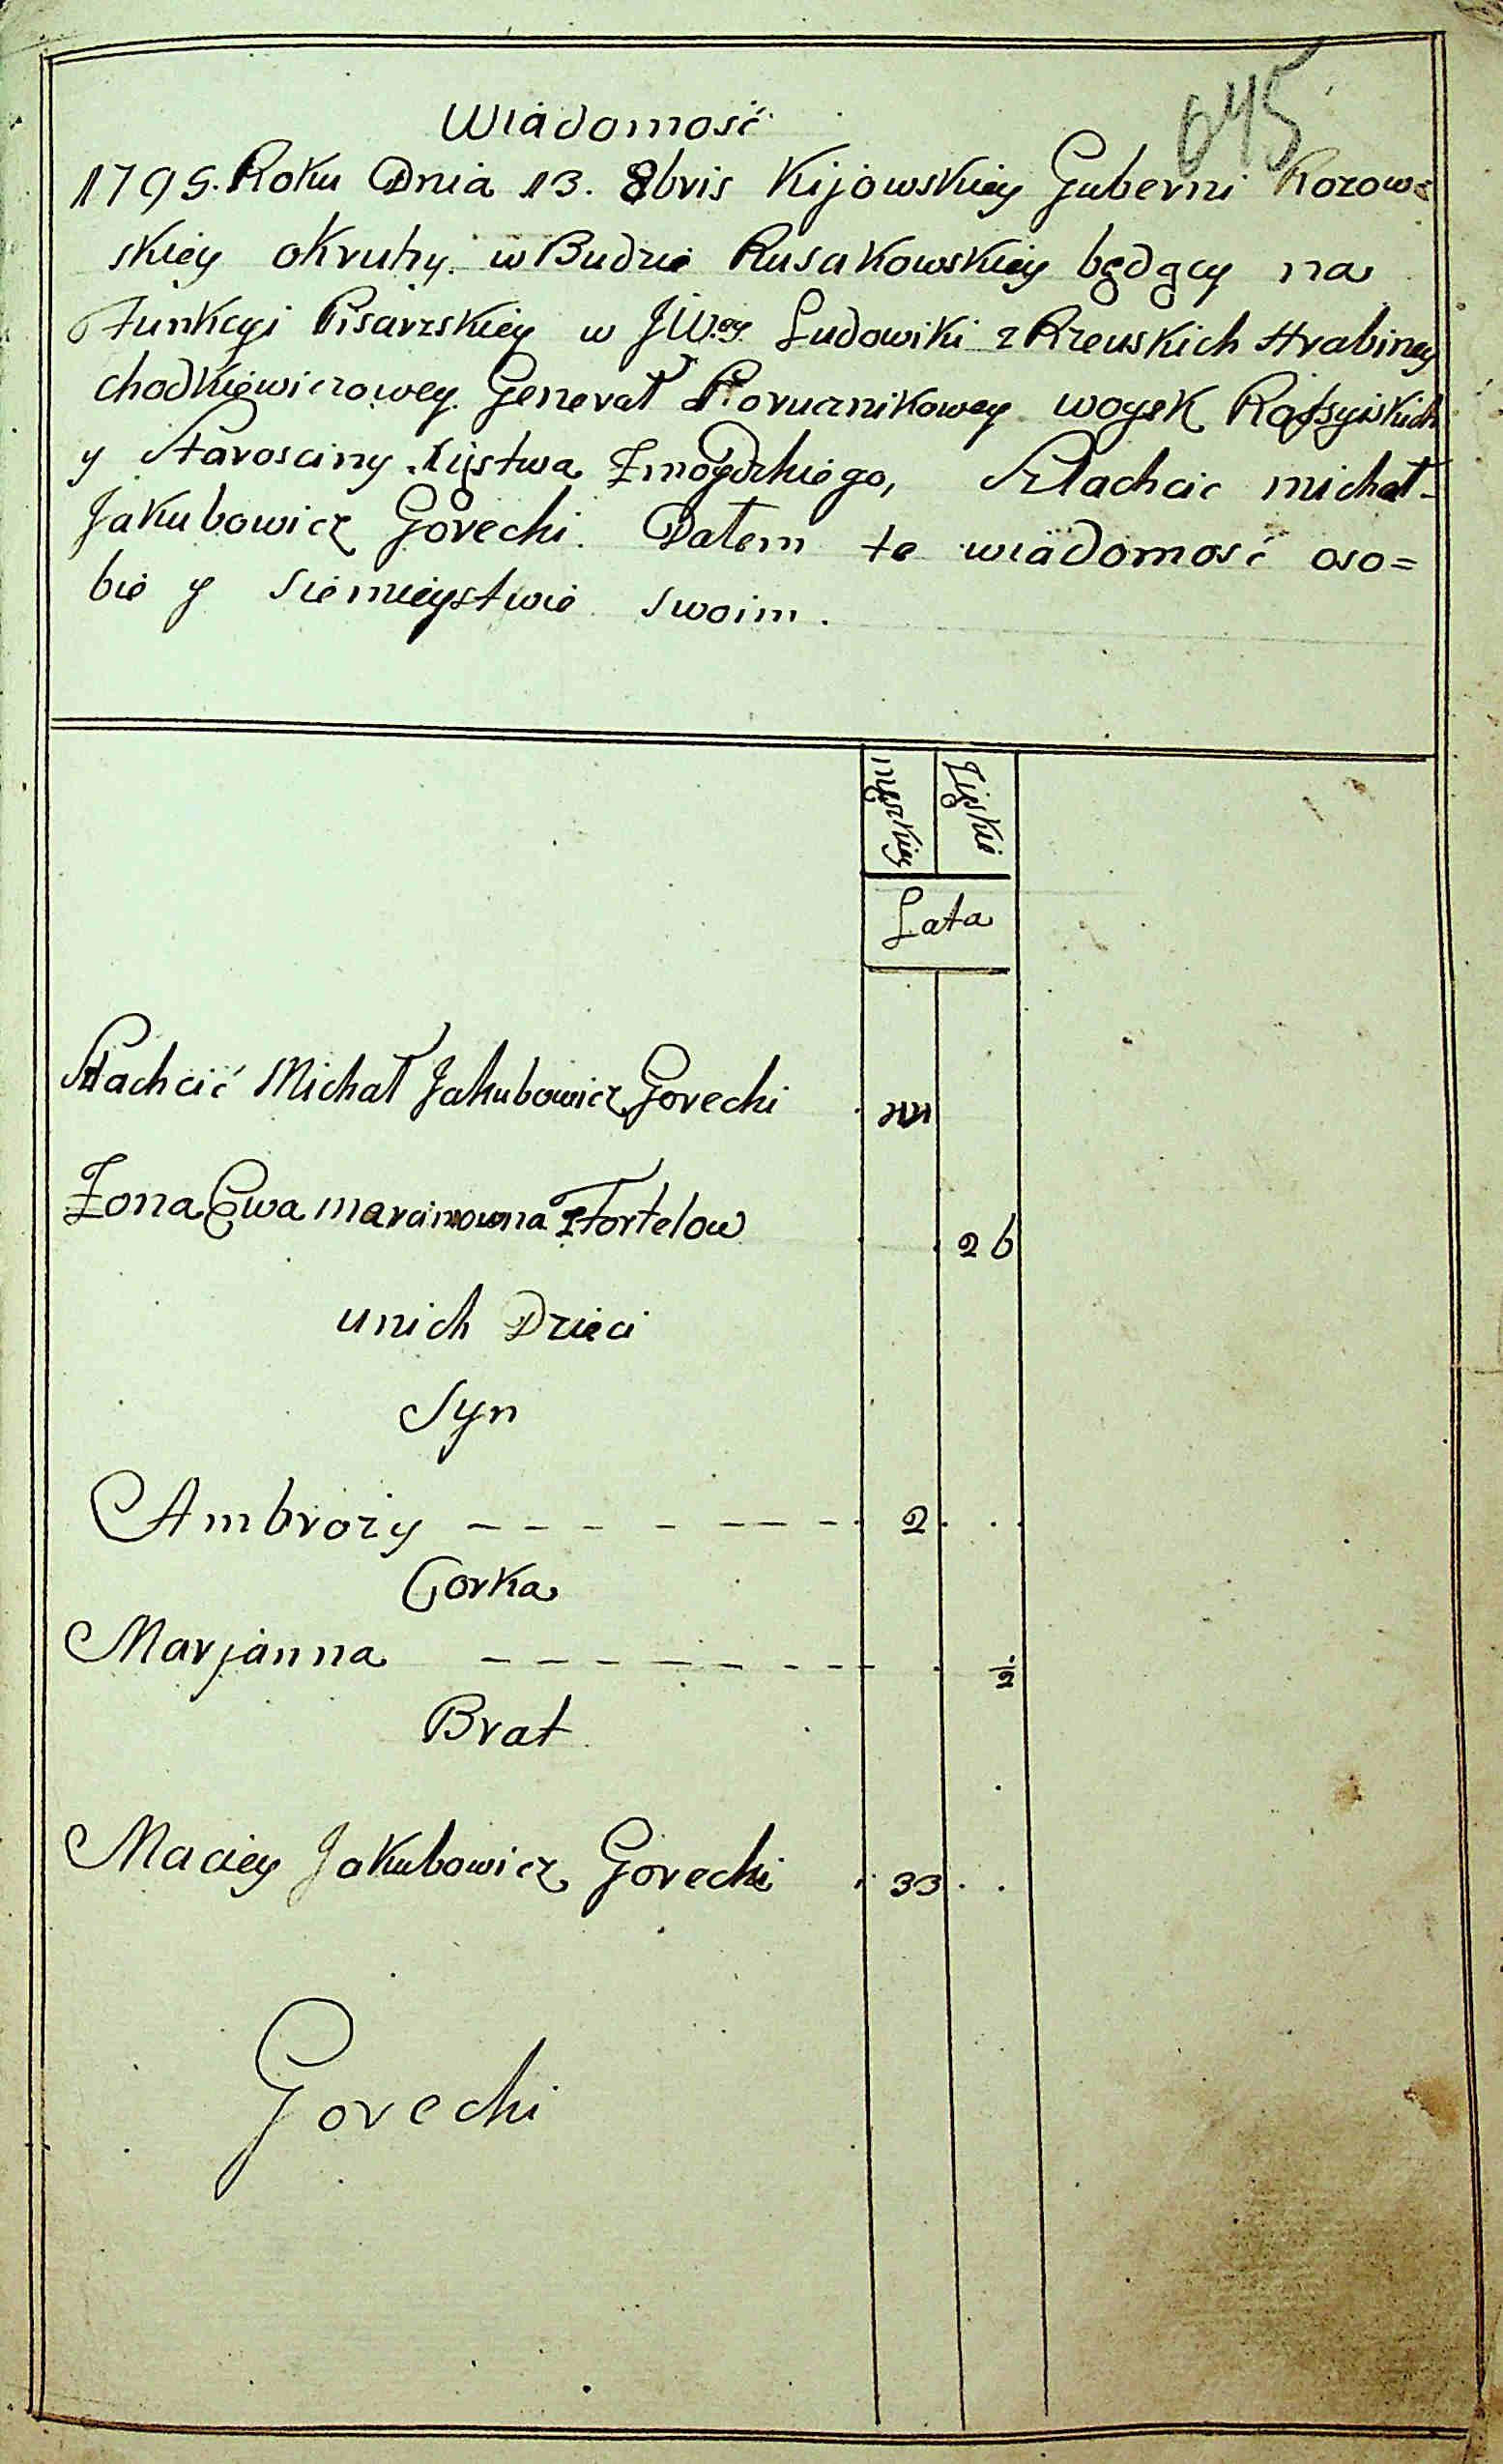 645
Wiadomość
1795. Roku Dnia 13. 8bris Kijowskiey Guberni Rozow=
skiey okruhy. w Budzie Rusakowskiey będący na
Funkcyi Pisarzskiey w JW.ey Ludowiki z Rzeuskich Hrabiney
chodkiewiczowey Generał Porucznikowey woysk Rossyiskich
y Starosciny Xięstwa Zmoydzkiego, Szlachcic michał
Jakubowicz Gorecki. Dałem te wiadomość oso=
bie y swoim.
męszkiey Żęskie
Lata
Szlachcić Michał Jakubowicz Gorecki
Zona Ewa z Fortelow 26
unich Dzieci
Syn
Ambroży - - - - - - - - 2 . .
Corka
Marjanna - - - - - - - - - . ½
Brat
Maciey Jakubowicz Gorecki . 33 . .
Gorecki